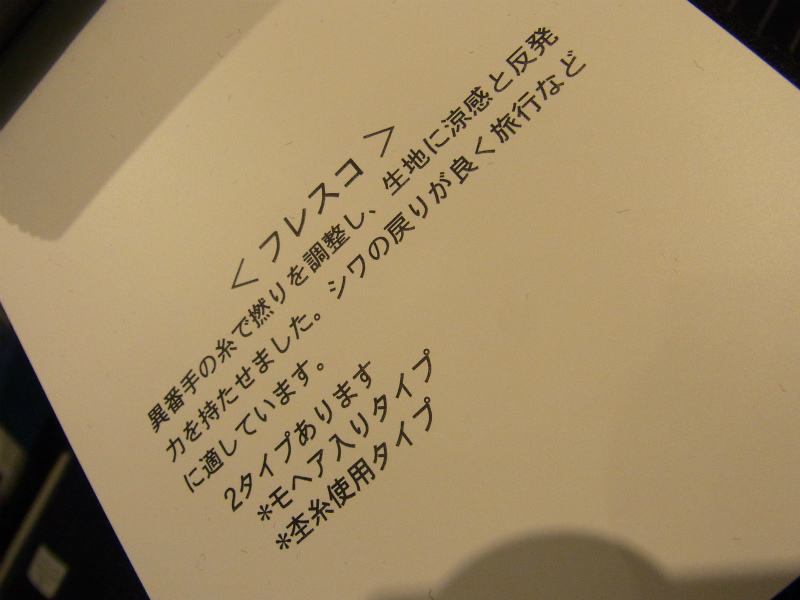 ＜フレスコ＞
異番手の糸で撚りを調整し、生地に涼感と反発
力を持たせました。シワの戻りが良く旅行など
に適しています。
2タイプあります
*モヘア入りタイプ
*杢糸使用タイプ